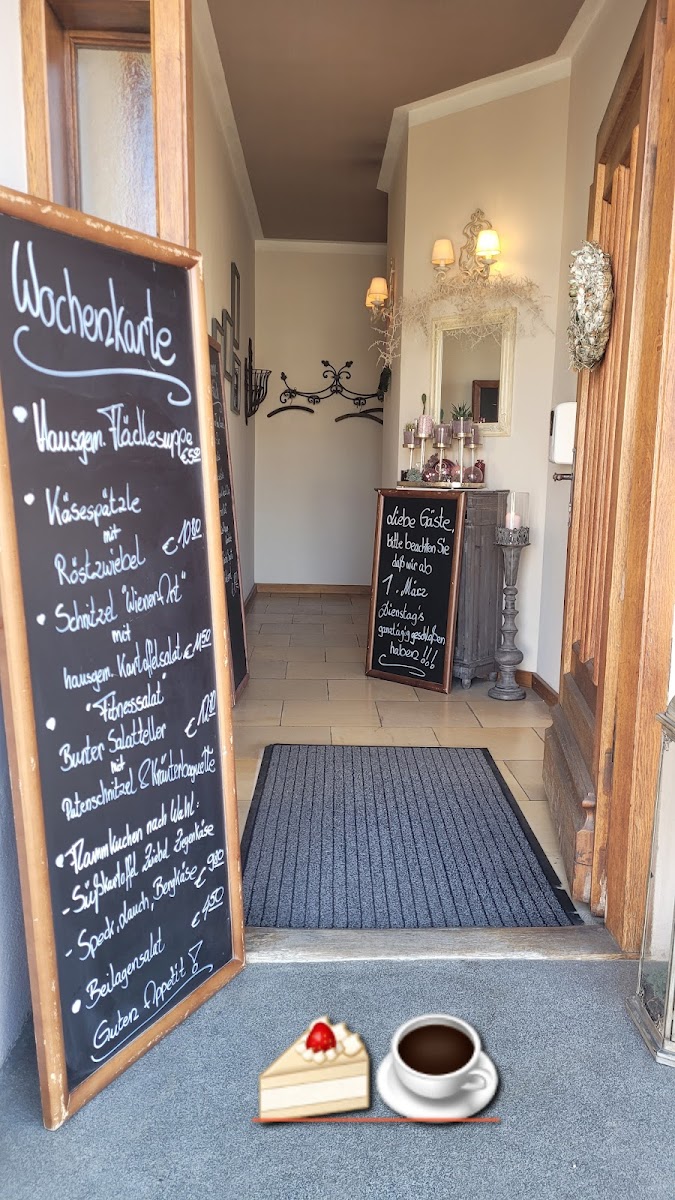 Wochenkarte
Hausgem. Flädlesuppe
€ 5,50
Käsespätzle
mit
Röstzwiebel € 10.80
Schnitzel "Wiener Art"
mit
hausgem. Kartoffelsalat € 11,50
"Fitnessalat"
Bunter Salatteller
mit
Putenschnitzel & Kräuterbaguette
Flammkuchen nach Wahl:
- Süßkartoffel Zwiebel Ziegenkäse
- Speck, Lauch, Bergkäse € 9,80
Beilagensalat € 4,50
Guten Appetit!
Liebe Gäste,
bitte beachten Sie
daß wir ab
1. März
Dienstag's
ganztägig geschloßen
haben !!!